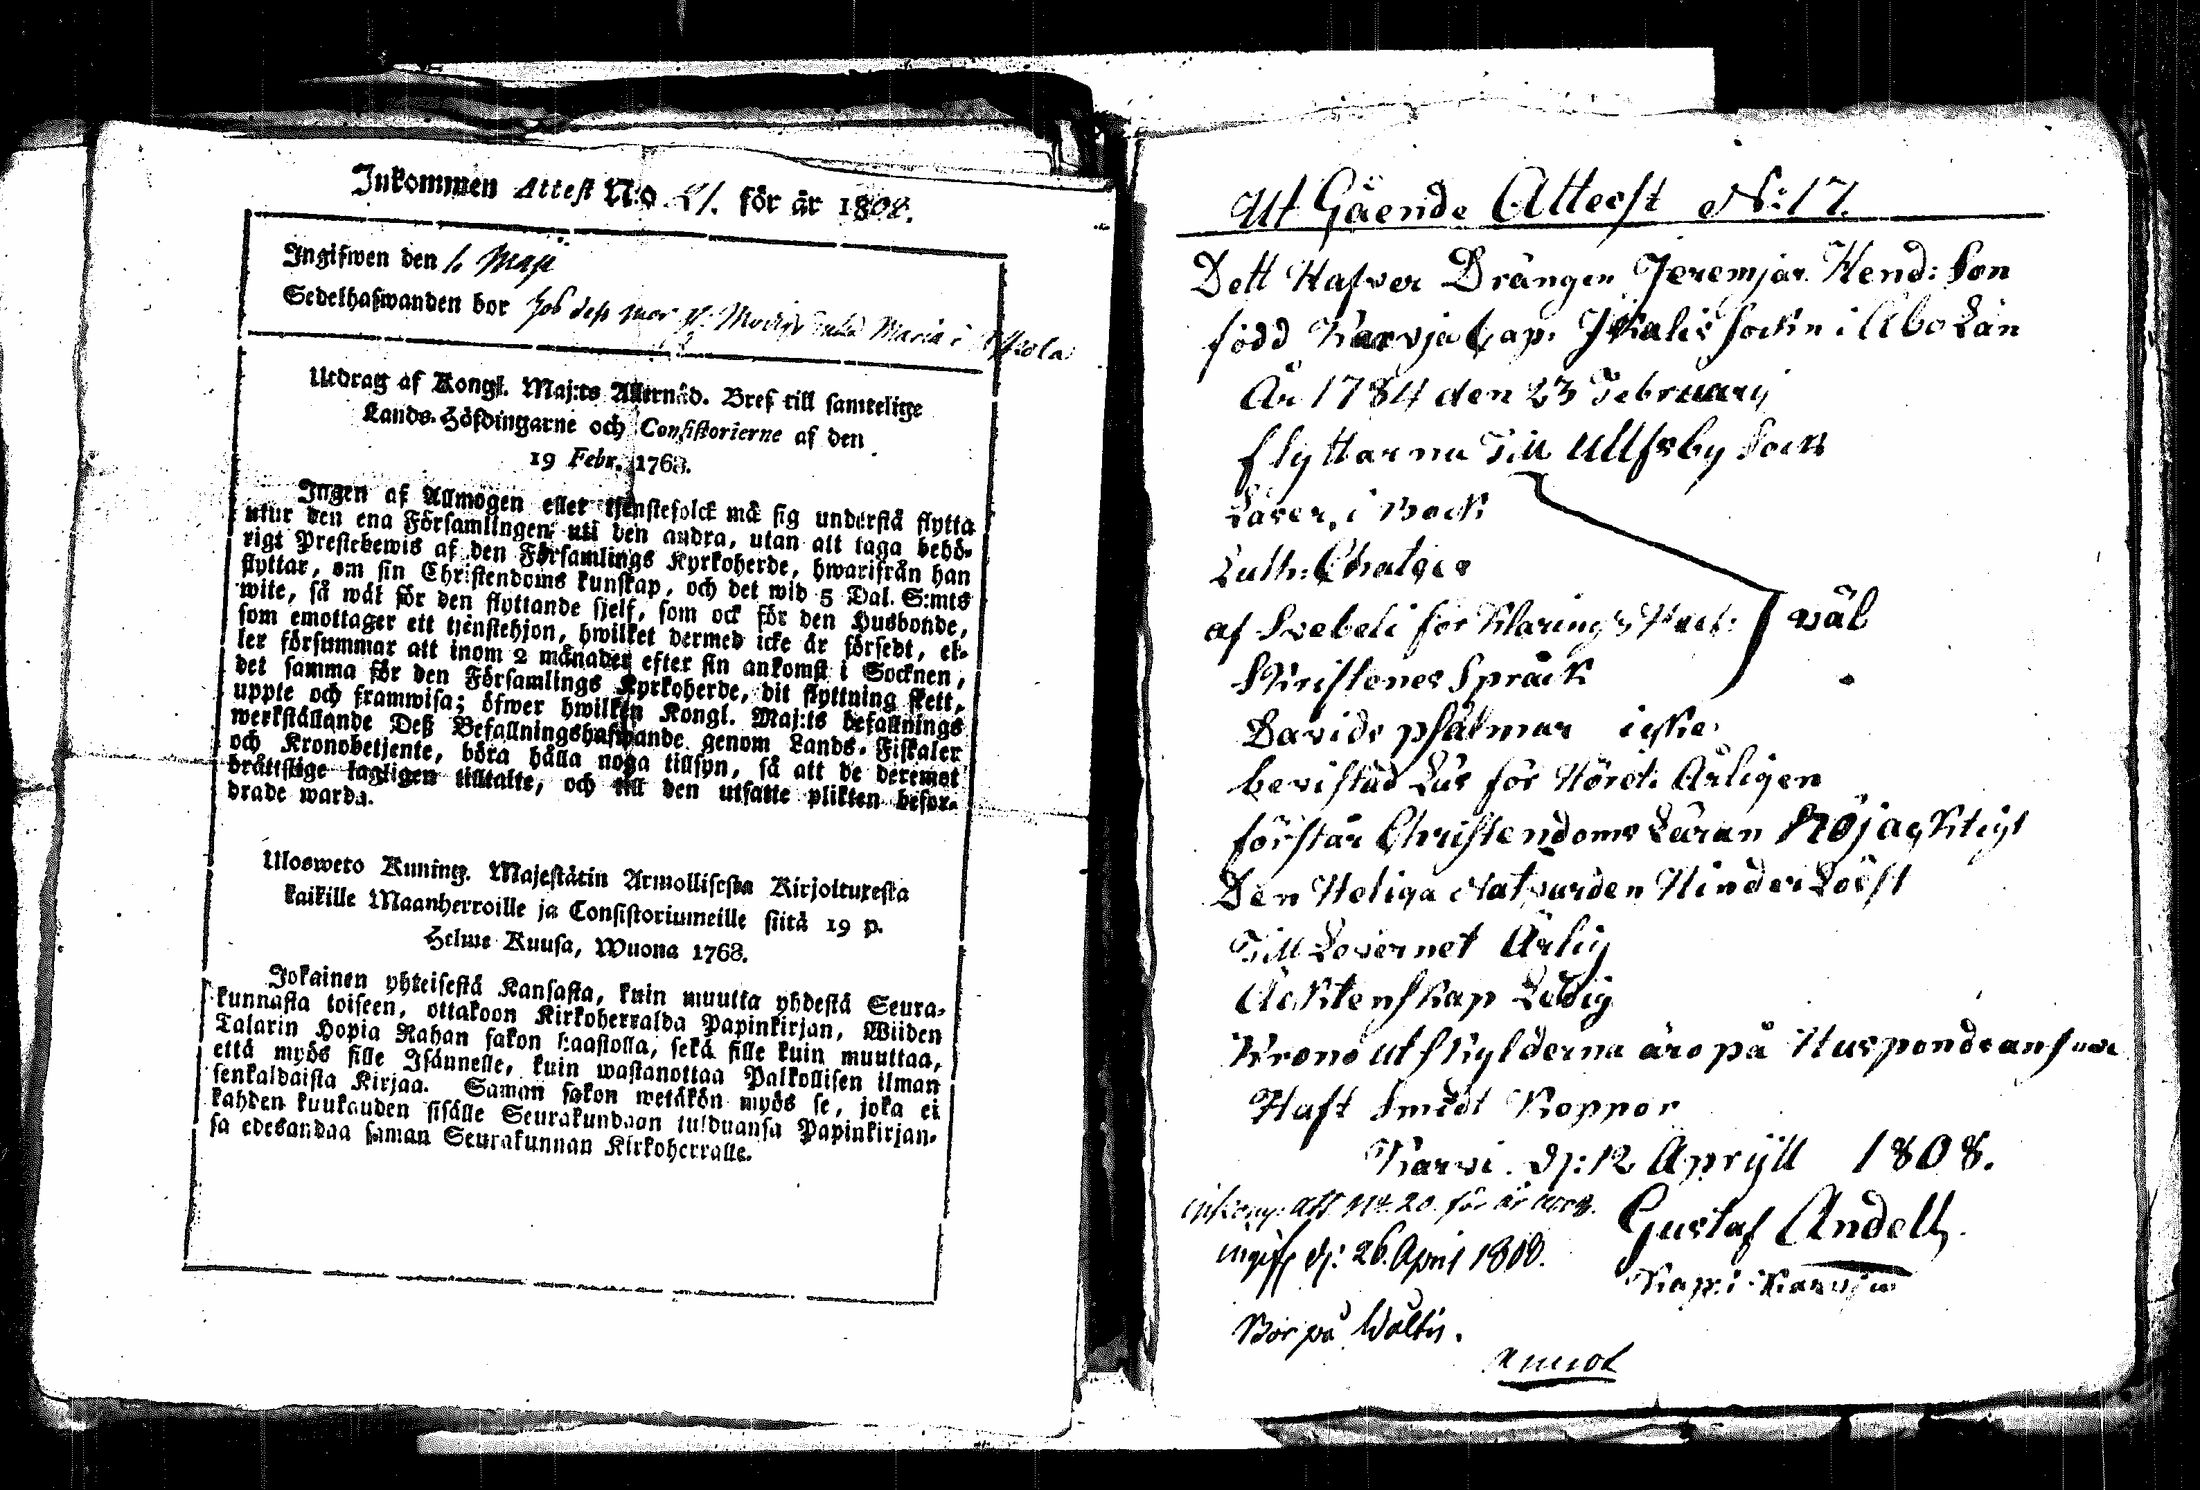 Inkommen Attest N:o 21. för år 1808.
Ingifwen den 1. Maji
Sedelhafwanden bor hos dess mor Maria i
Utdrag af Kongl. Maj:ts Allernåd. Bref till samtelige
Lands-Höfdingarne och Consistorierne af den
19 Febr. 1768.
Ingen af Allmogen eller tjenstefolck må sig understå flytta
utur den ena Församlingen uti den andra, utan att taga behö-
rigt Prestebewis af den Församlings Kyrkoherde, hwarifrån han
flyttar, om sin Christendoms kunskap, och det wid 5 Dal. S:mts
wite, så wäl för den flyttande sjelf, som ock för den Husbonde,
som emottager ett tjenstehjon, hwilket dermed icke är försedt, el-
ler försummar att inom 2 månader efter sin ankomst i Socknen,
det samma för den Församlings Kyrkoherde, dit flyttning skett,
uppte och framwisa; öfwer hwilken Kongl. Maj:ts befallnings
werkställande Deß Befallningshafwande genom Lands-Fiskaler
och Kronobetjente, böra hålla noga tillsyn, så att de deremot
bråttslige lagligen tilltalte, och till den utsatte plikten befor-
drade warda.
Ulosweto Kuning. Majestätin Armollisesta Kirjoituxesta
kaikille Maanherroille ja Consistoriumeille siitä 19 p.
Helme Kuusa, Wuona 1768.
Jokainen yhteisestä Kansasta, kuin muutta yhdestä Seura-
kunnasta toiseen, ottakoon Kirkoherralda Papinkirjan, Wiiden
Talarin Hopia Rahan sakon haastolla, sekä sille kuin muuttaa,
että myös sille Isännelle, kuin wastanottaa Palkollisen ilman
senkaldaista Kirjaa. Saman sakon wetäkön myös se, joka ei
kahden kuukauden sisälle Seurakundaan tulduansa Papinkirjan-
sa edesandaa saman Seurakunnan Kirkoherralle.
Ut Gående Atteest N:17.
Dett Hafver Drängen Jeremjas Hend: Son
född Karvja Cap. Ikalis Sockn i Åbo Län
År 1784 den 23 Februarij
flyttar nu Till Ullfsby Sock
Läser i Bock
Luth: Chatges
af Svebeli för Klaring
Skriftenes Språk
väl
Davids psalmar icke
bevistad Läs för Höret Årligen
förstår Christendoms Läran Nöjacktigt
Den Heliga Natvarden Hinder Löst
Till Levernet Ärlig
Äcktenskap Ledig
Krono utskylderna äro på Huspondes ansvar
Haft Smådt Koppor
Karvi d: 12 Aprijll 1808.
Inkom: Att. N:o 20. för år 1808.
Gustaf Andell
ingifv d: 26. April 1808.
Kap: i Karvja
Bor på Wåltis.